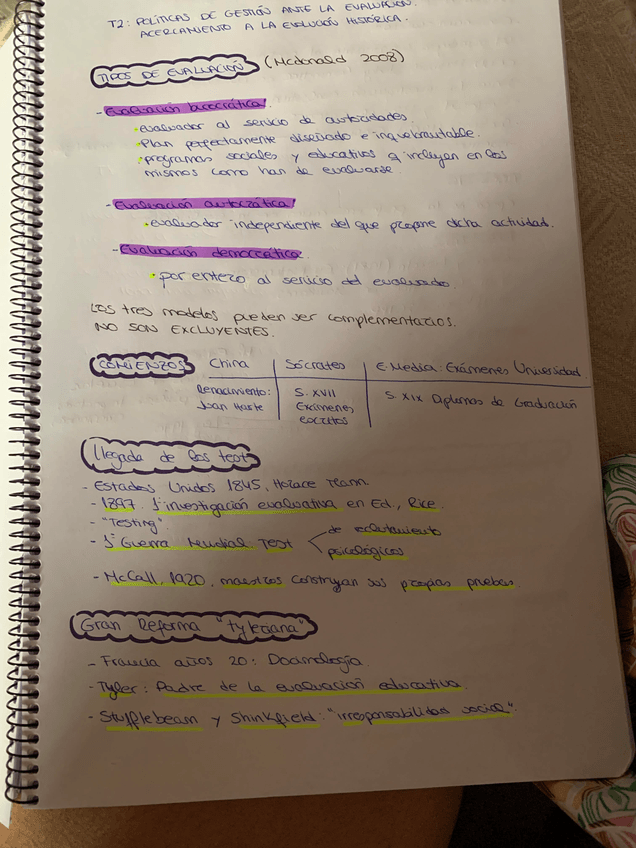 T2: POLÍTICAS DE GESTIÓN ANTE LA EVALUACIÓN.
ACERCAMIENTO A LA EVOLUCIÓN HISTÓRICA.
TIPOS DE EVALUACIÓN (McDonald 2008)
- Evaluación burocrática
· evaluador al servicio de autoridades.
· Plan perfectamente diseñado e inquebrantable.
· programas sociales y educativos q incluyen en los
mismos como han de evaluarse.
- Evaluación autocrática
· evaluador independiente del que propone dicha actividad.
- Evaluación democrática
· por entero al servicio del evaluado.
Los tres modelos pueden ser complementarios.
NO SON EXCLUYENTES.
COMIENZOS China Sócrates E. Media: Exámenes Universidad.
Renacimiento: S. XVII S. XIX Diplomas de Graduación
Juan Huarte Exámenes
escritos
Llegada de los test
- Estados Unidos 1845, Horace Mann.
- 1897. 1ª investigación evaluativa en Ed., Rice.
- "Testing".
- 1ª Guerra Mundial Test de reclutamiento
psicológicos
- McCall, 1920, maestros construyan sus propias pruebas.
Gran Reforma "tyleriana"
- Francia años 20: Docimología.
- Tyler: Padre de la evaluación educativa.
- Stufflebeam y Shinkfield: "irresponsabilidad social".